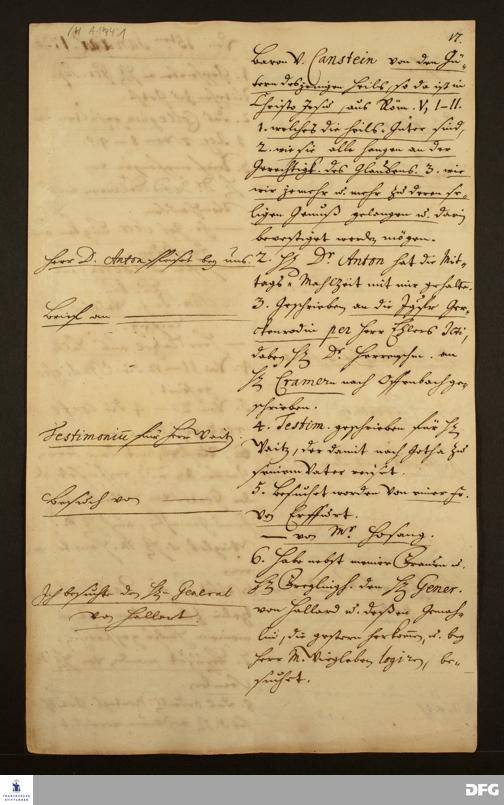 17.
Baron v. Canstein von den Gü-
tern desjenigen Heils, so da ist in
Christo Jesu, aus Röm. V, 1-11.
1. welches die Heils-Güter sind,
2. wie sie alle hangen an der
Gerechtigk. des Glaubens. 3. wie
wir je mehr u. mehr zu deren se-
ligen Genuß gelangen u. darin
bevestiget werden mögen.
Herr D. Anton speiset bey uns.
2. H. Dr. Anton hat die Mit-
tags-Mahlzeit mit mir gehalten.
Brief an
3. Geschrieben an die Jgfr Ger-
ckenrodin per Herr
dabey H. Dr. an
H. Cramern nach Offenbach ge-
schrieben.
Testimoniũ für Herr Vaitz
4. Testim. geschrieben für H.
Vaitz, der damit nach Gotha zu
seinem Vater reiset.
Besuch von
5. Besuchet worden von einer Fr.
von Erffurt.
— von Mr. Hosang.
Ich besuchte den Hn General
von Hallart.
6. Habe nebst meiner Frauen u.
H. den H. Gener.
von Hallard u. deßen Gemah-
lin, die gestern herkommen, u. bey
Herr M. Wiegleben logiren, be-
suchet.
FRANCKESCHE STIFTUNGEN
DFG